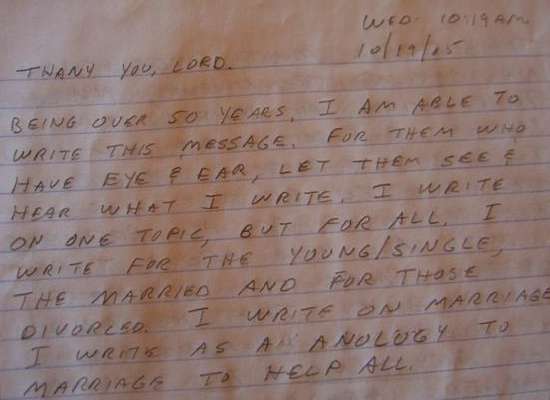 WED. 10:19AM
10/19/05
THANY YOU, LORD.
BEING OVER 50 YEARS, I AM ABLE TO
WRITE THIS MESSAGE. FOR THEM WHO
HAVE EYE & EAR, LET THEM SEE &
HEAR WHAT I WRITE. I WRITE
ON ONE TOPIC, BUT FOR ALL. I
WRITE FOR THE YOUNG/SINGLE,
THE MARRIED AND FOR THOSE
DIVORCED. I WRITE ON MARRIAGE
I WRITE AS A ANOLOGY TO
MARRIAGE TO HELP ALL.